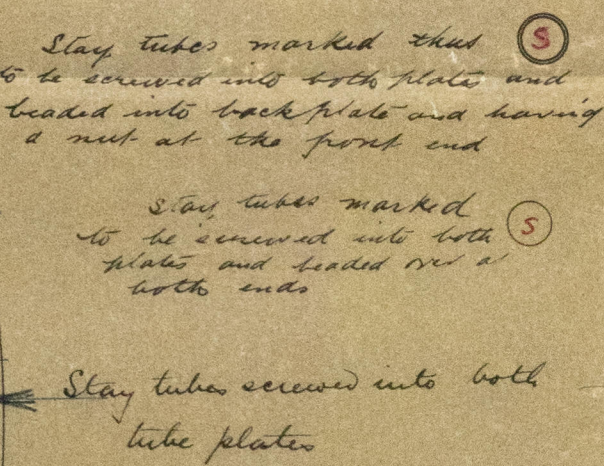 Stay tubes marked thus S
to be screwed into both plates and
beaded into back plate and having
a nut at the front end
Stay tubes marked S
to be screwed into both
plates and beaded over a
both ends
Stay tubes screwed into both
tube plates